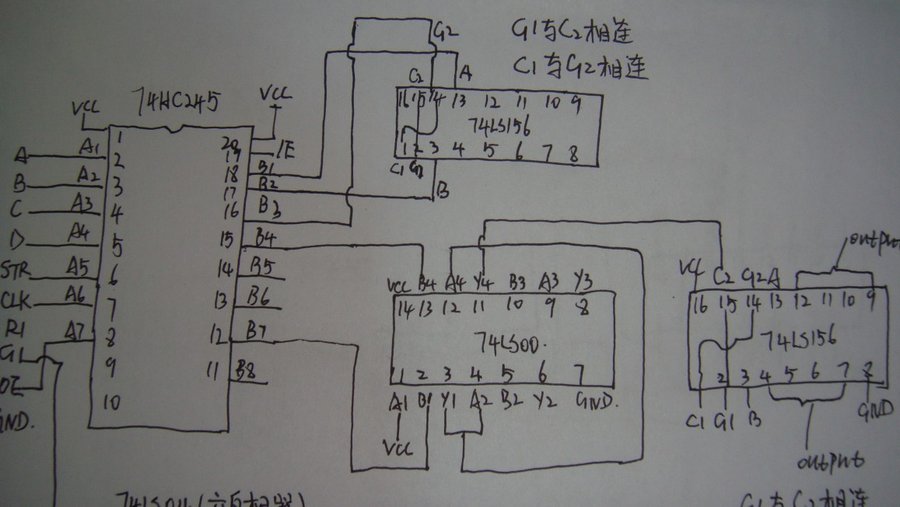 G1与C2相连
C1与G2相连
G2
A
C2
16 15 14 13 12 11 10 9
74LS156
1 2 3 4 5 6 7 8
C1 G1
B
74HC245
VCC
VCC
1
20
19
1E
A
A1
2
18
B1
B
A2
3
17
B2
C
A3
4
16
B3
D
A4
5
15
B4
STR
A5
6
14
B5
CLK
A6
7
13
B6
R1
A7
8
12
B7
G1
9
11
B8
OE
10
GND.
VCC B4 A4 Y4 B3 A3 Y3
14 13 12 11 10 9 8
74LS00.
1 2 3 4 5 6 7
A1 B1 Y1 A2 B2 Y2 GND.
VCC
output
VCC C2 G2 A
16 15 14 13 12 11 10 9
74LS156
1 2 3 4 5 6 7 8
C1 G1 B
GND
output
G1与C2相连